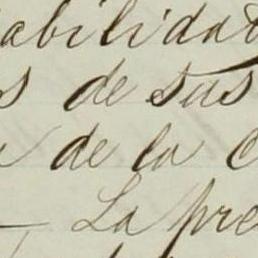 abilidad
s de sus
a de la c
— La pre